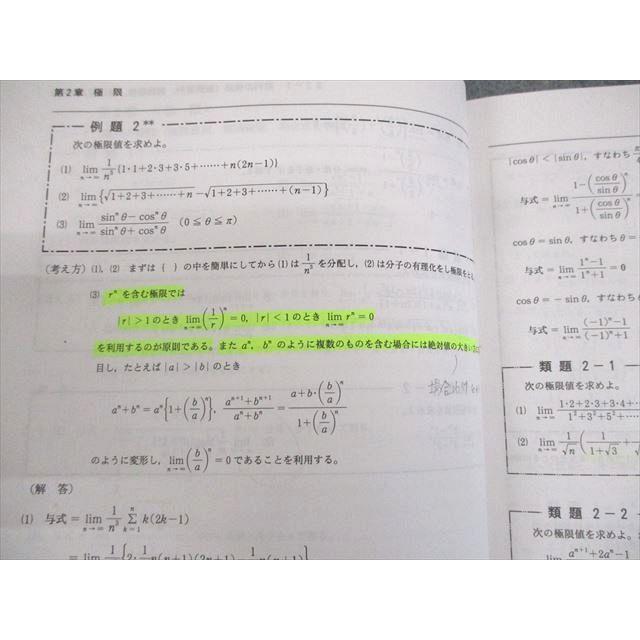 第2章 極 限
例 題 2**
次の極限値を求めよ。
(1) lim_{n→∞} 1/n³{1·1+2·3+3·5+……+n(2n-1)}
(2) lim_{n→∞}{√(1+2+3+……+n)-√(1+2+3+……+(n-1))}
(3) lim_{n→∞} (sinⁿθ-cosⁿθ)/(sinⁿθ+cosⁿθ) (0≦θ≦π)
(考え方) (1), (2) まずは { } の中を簡単にしてから(1)は 1/n³ を分配し, (2)は分子の有理化をし極限を
(3) rⁿ を含む極限では
|r|>1のとき lim_{n→∞}(1/r)ⁿ=0, |r|<1のとき lim_{n→∞} rⁿ=0
を利用するのが原則である。また aⁿ, bⁿ のように複数のものを含む場合には絶対値の大きい
目し, たとえば |a|>|b| のとき
aⁿ+bⁿ=aⁿ{1+(b/a)ⁿ}, (aⁿ⁺¹+bⁿ⁺¹)/(aⁿ+bⁿ)=(a+b·(b/a)ⁿ)/(1+(b/a)ⁿ)
のように変形し, lim_{n→∞}(b/a)ⁿ=0であることを利用する。
(解 答)
(1) 与式=lim_{n→∞} 1/n³ Σ_{k=1}^{n} k(2k-1)
|cosθ|<|sinθ|, すなわち
与式=lim_{n→∞} (1-(cosθ/sinθ)ⁿ)/(1+(cosθ/sinθ)ⁿ)
cosθ=sinθ, すなわちθ=
与式=lim_{n→∞} (1ⁿ-1)/(1ⁿ+1)=0
cosθ=-sinθ, すなわち
与式=lim_{n→∞} ((-1)ⁿ-1)/((-1)ⁿ+1)
類 題 2-1
次の極限値を求めよ。
(1) lim_{n→∞} (1·2+2·3+3·4+…)/(1²+3²+5²+…
(2) lim_{n→∞} 1/√n (1/(1+√3)+
類 題 2-2
次の極限値を求めよ。
lim_{n→∞} aⁿ⁺¹+2aⁿ-1